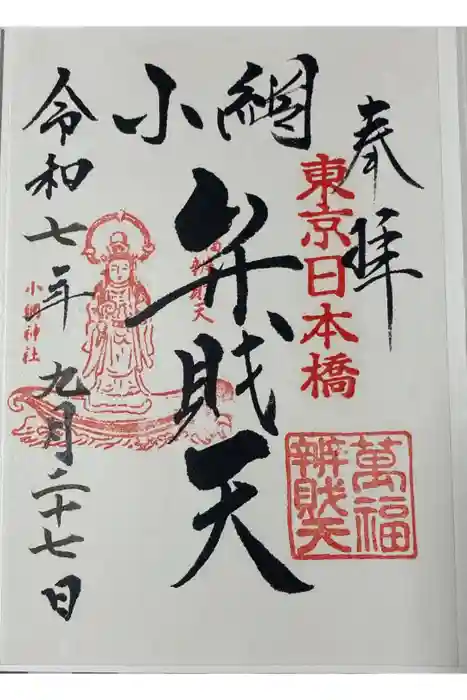 奉拝
東京日本橋
萬福
辨財天
小網
弁財天
令和七年九月二十七日
小網神社